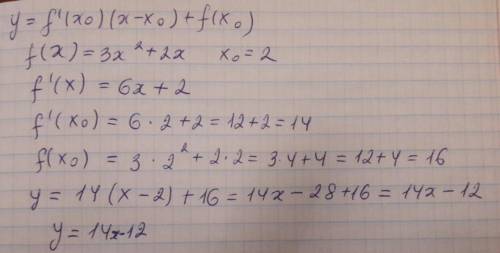 y = f'(x₀)(x-x₀)+f(x₀)
f(x) = 3x²+2x x₀=2
f'(x) = 6x+2
f'(x₀) = 6·2+2=12+2=14
f(x₀) = 3·2²+2·2=3·4+4=12+4=16
y = 14(x-2)+16=14x-28+16=14x-12
y=14x-12